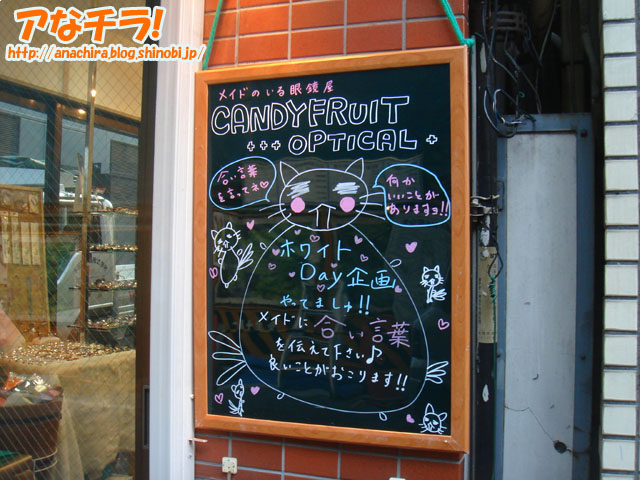 アなチラ!
http://anachira.blog.shinobi.jp/
メイドのいる眼鏡屋
CANDYFRUIT
+++ OPTICAL +
合い言葉
を言ってネ♡
何か
いいことが
ありますヨ!!
ホワイト
Day企画
やってましゅ!!
メイドに合い言葉
を伝えて下さい♪
良いことがおこります!!